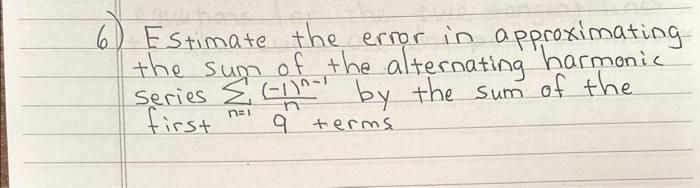 6) Estimate the error in approximating
the sum of the alternating harmonic
series ∑ n=1 (-1)^n-1 / n by the sum of the
first 9 terms